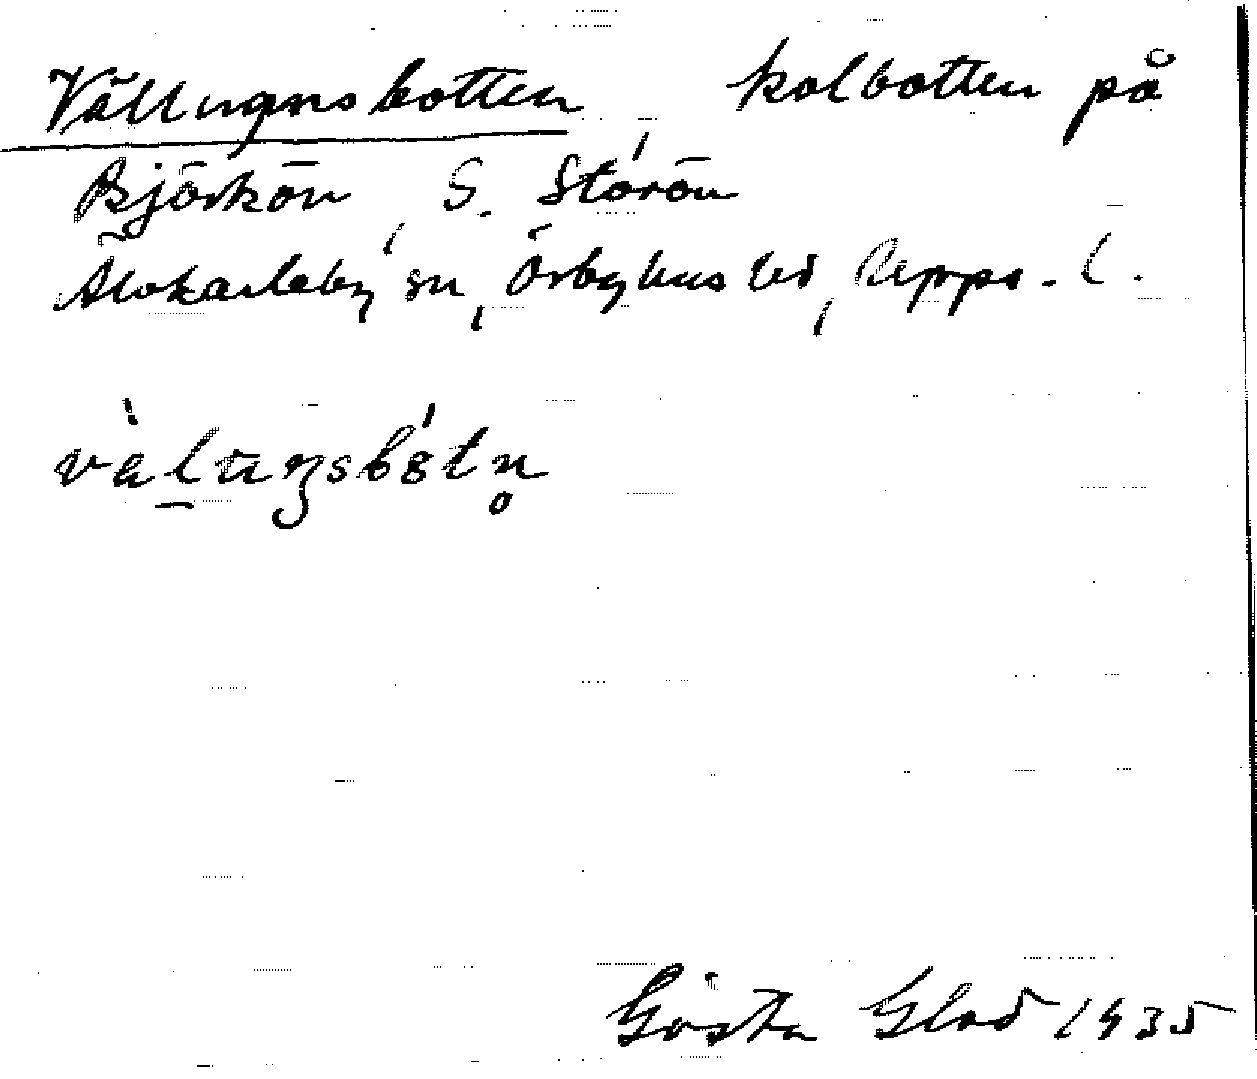 Vällugnsbotten kolbotten på
Björkön, S. Storön,
Älvkarleby sn, Örbyhus hd, Upps. l.
Gösta Glad 1935